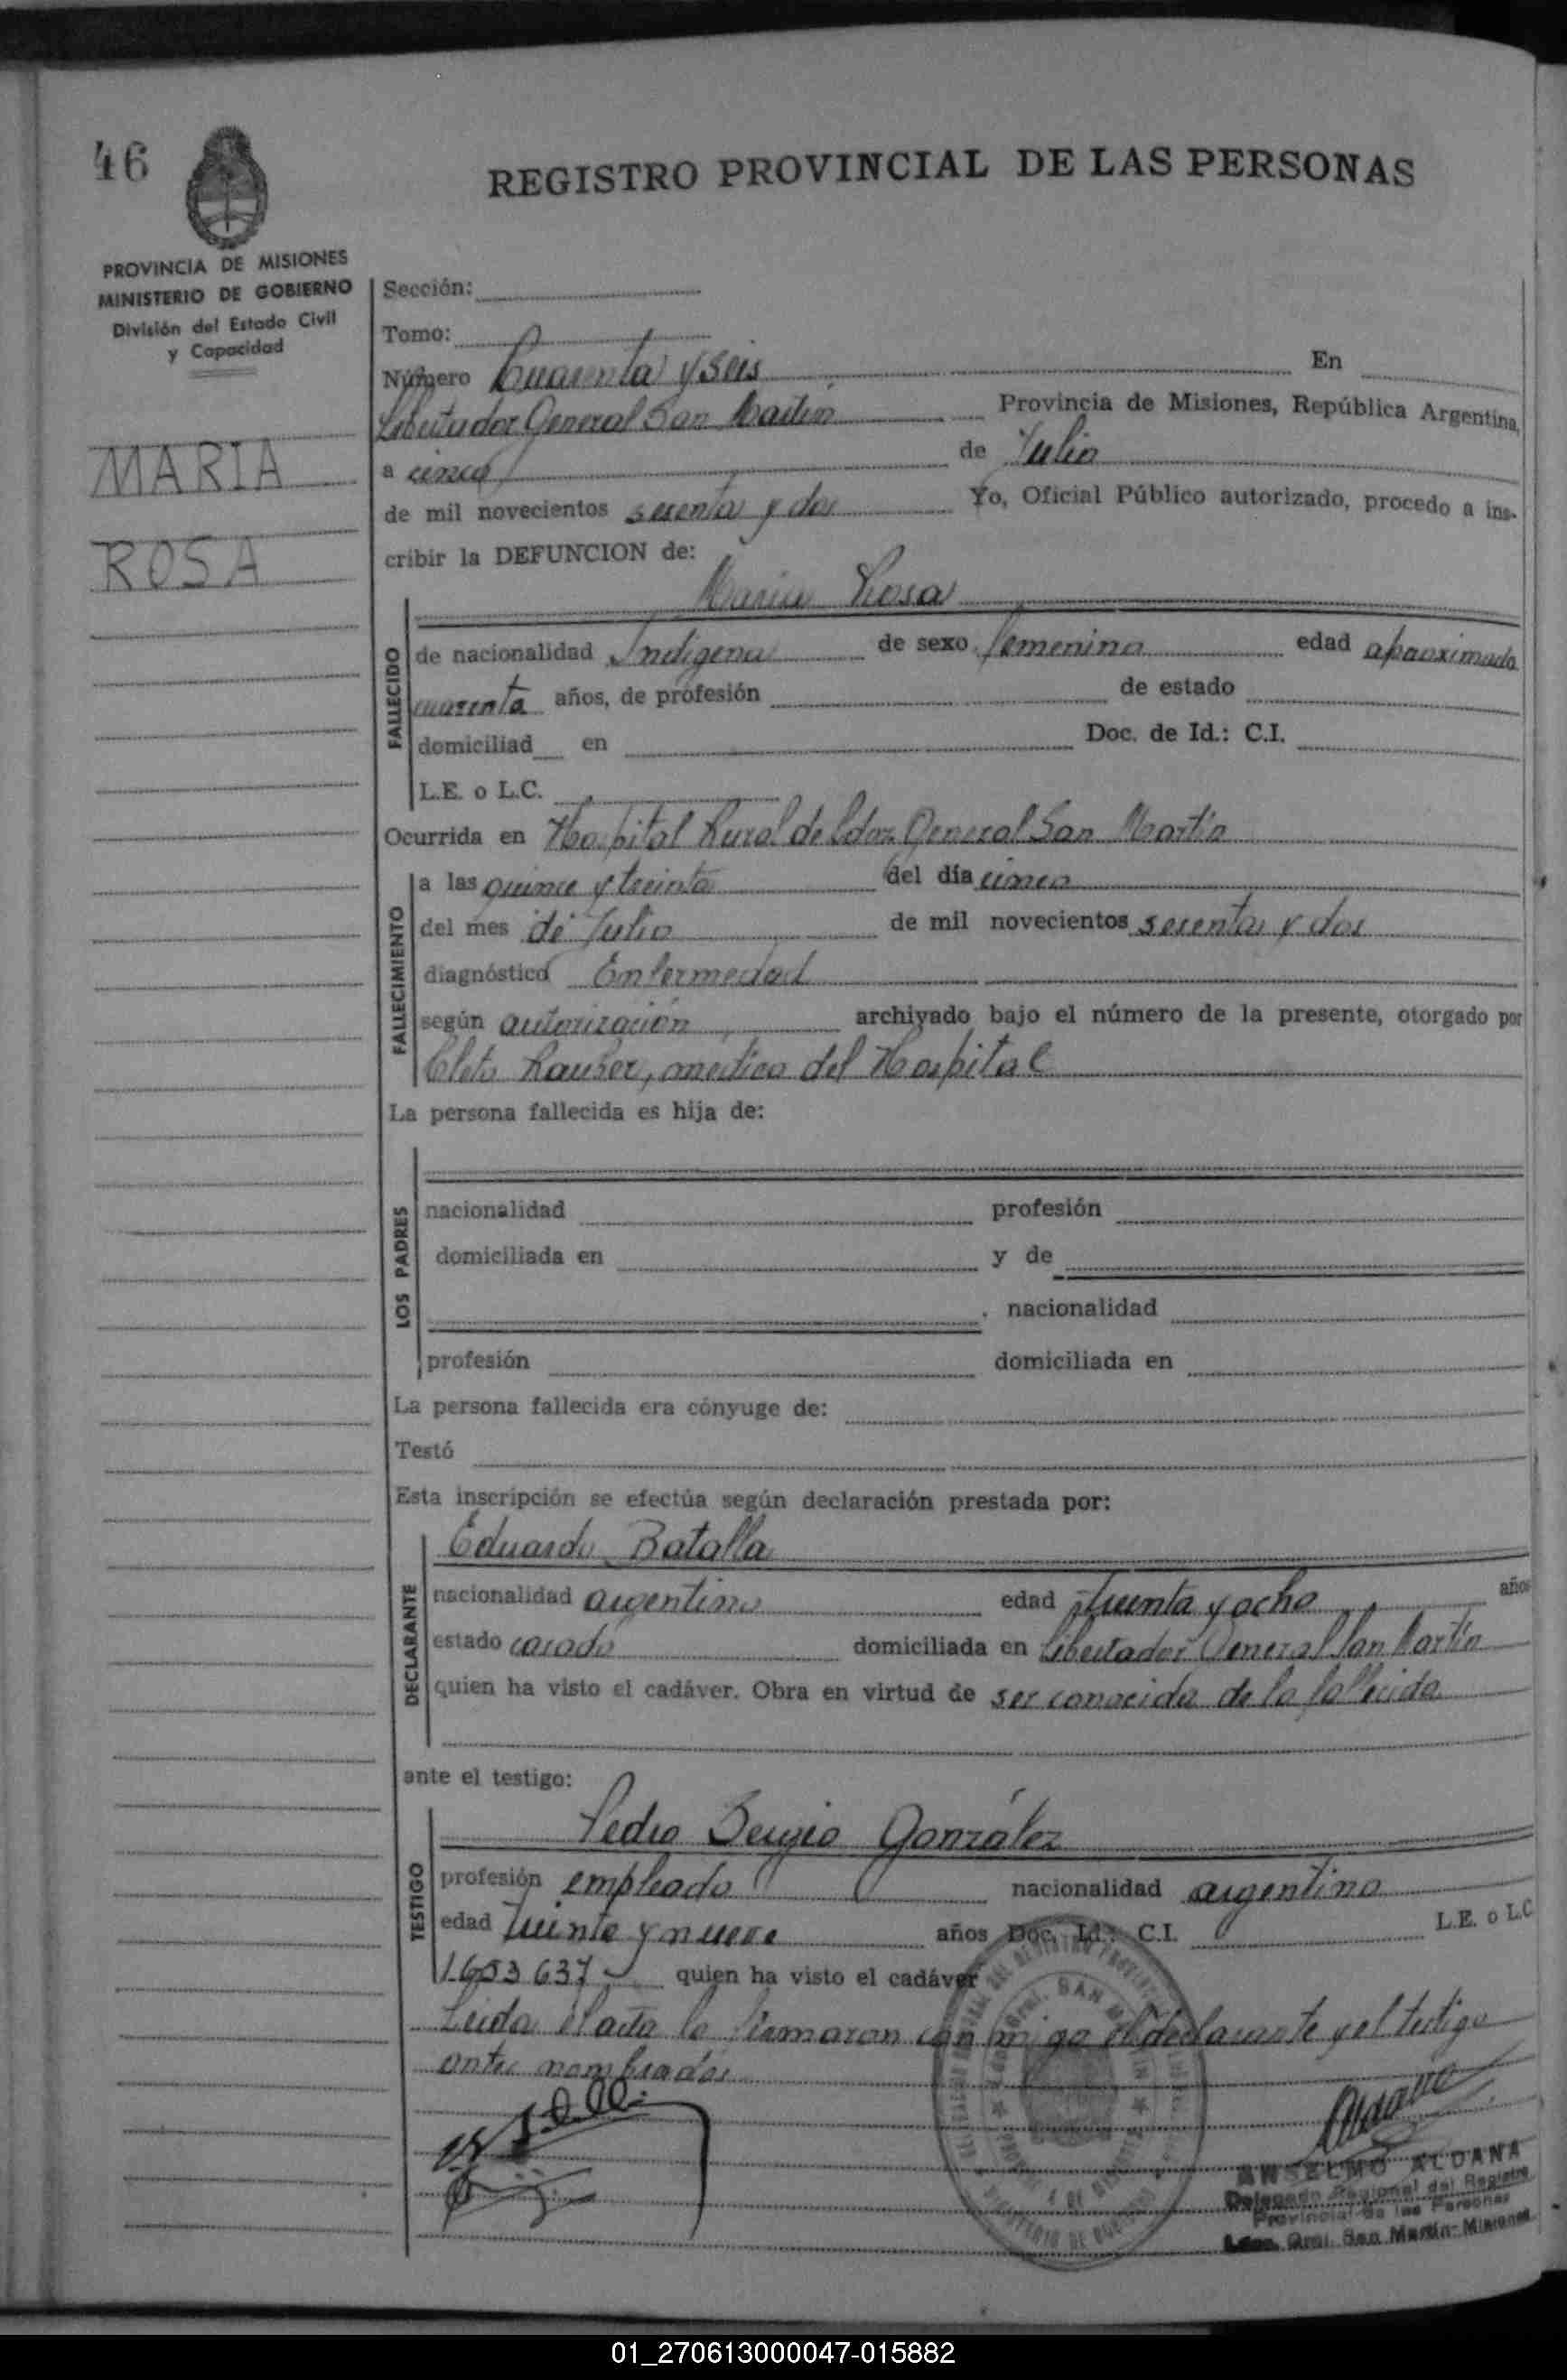 46
REGISTRO PROVINCIAL DE LAS PERSONAS
PROVINCIA DE MISIONES
MINISTERIO DE GOBIERNO
División del Estado Civil
y Capacidad
MARIA
ROSA
Sección:
Tomo:
Número Cuarenta y Seis En
Libertador General San Martín Provincia de Misiones, República Argentina,
a cinco de Julio
de mil novecientos sesenta y dos Yo, Oficial Público autorizado, procedo a ins-
cribir la DEFUNCION de:
Maria Rosa
FALLECIDO
de nacionalidad Indigena de sexo femenino edad aproximada
cuarenta años, de profesión de estado
domiciliad en Doc. de Id.: C.I.
L.E. o L.C.
Ocurrida en Hospital Rural de Ldor General San Martín
FALLECIMIENTO
a las quince y treinta del día cinco
del mes de Julio de mil novecientos sesenta y dos
diagnóstico Enfermedad
según autorización archivado bajo el número de la presente, otorgado por
Cleto Rauber, medico del Hospital
La persona fallecida es hija de:
LOS PADRES
nacionalidad profesión
domiciliada en y de
nacionalidad
profesión domiciliada en
La persona fallecida era cónyuge de:
Testó
Esta inscripción se efectúa según declaración prestada por:
DECLARANTE
Eduardo Batalla
nacionalidad argentino edad treinta y ocho años
estado casado domiciliada en Libertador General San Martín
quien ha visto el cadáver. Obra en virtud de ser conocido de la fallecida
ante el testigo:
TESTIGO
Pedro Sergio González
profesión empleado nacionalidad argentino
edad treinta y nueve años Doc. Id.: C.I. L.E. o L.C
1653637 quien ha visto el cadáver
Leida el acta la firmaron conmigo el declarante y el testigo
antes nombrados
ANSELMO ALDANA
Delegado Regional del Registro
Provincial de las Personas
Ldor. Gral. San Martín-Misiones
01_270613000047-015882